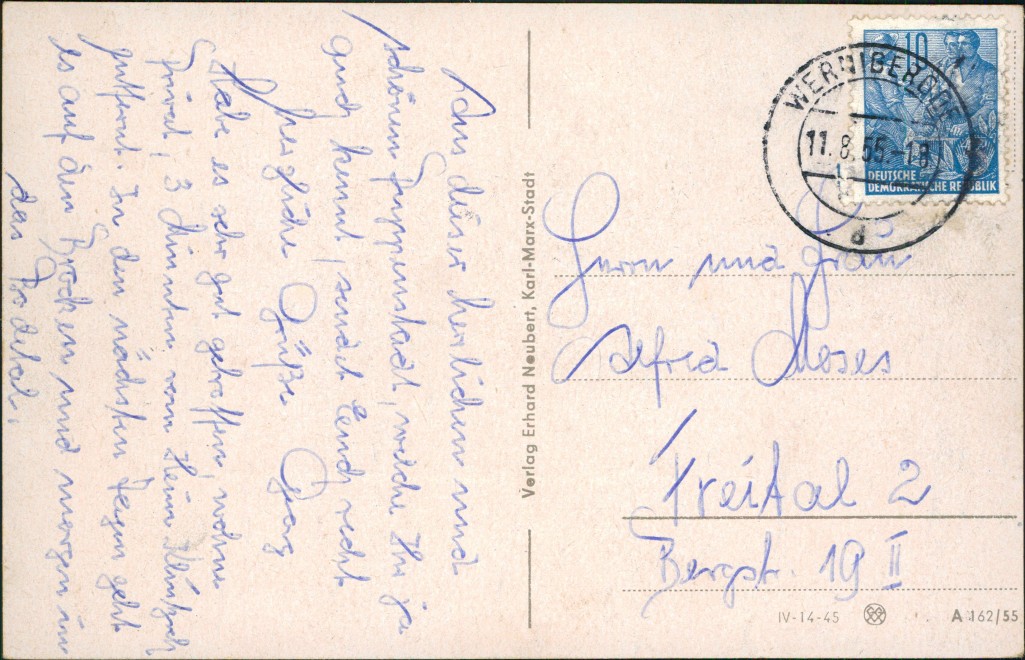 Aus dieser herlichen und
schönen Treppenstadt, welche Ihr ja
auch kennt, sendet Euch recht
herzliche Grüße
Habe es sehr gut getroffen, wohne
Privat, 3 Minuten vom Heim
entfernt. In den nächsten Tagen geht
es auf den Brocken und morgen in
das Bodetal.
Verlag Erhard Neubert, Karl-Marx-Stadt
10
DEUTSCHE
DEMOKRATISCHE REPUBLIK
WERNIGERODE
11.8.55.-18
d
Herrn und Frau
Alfred Moses
Freital 2
Bergstr. 19 II
IV-14-45
A 162/55